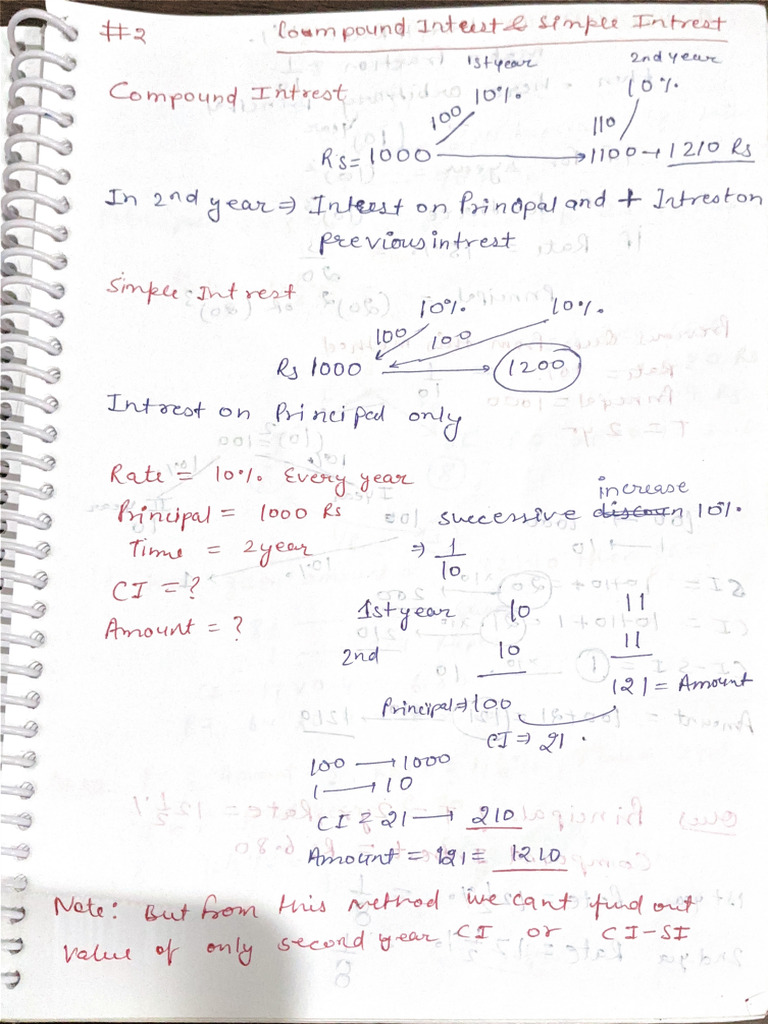 #2 Coumpound Interest & Simple Intrest
Compound Intrest
1st year 2nd year
100 10%. 110 10%.
Rs = 1000 → 1100 → 1210 Rs
In 2nd year ⇒ Interest on Principal and + Intrest on
previous intrest
Simple Intrest
10%. 10%.
100 100
Rs 1000 → 1200
Intrest on Principal only
Rate = 10%. Every year
Principal = 1000 Rs
Time = 2 year
CI = ?
Amount = ?
increase
successive discoun 10%.
⇒ 1/10
1st year 10 11
2nd 10 11
Principal ⇒ 100 121 = Amount
CI ⇒ 21.
100 → 1000
1 → 10
CI = 21 → 210
Amount = 121 = 1210
Note: But from this method we cant find out
value of only second year CI or CI-SI